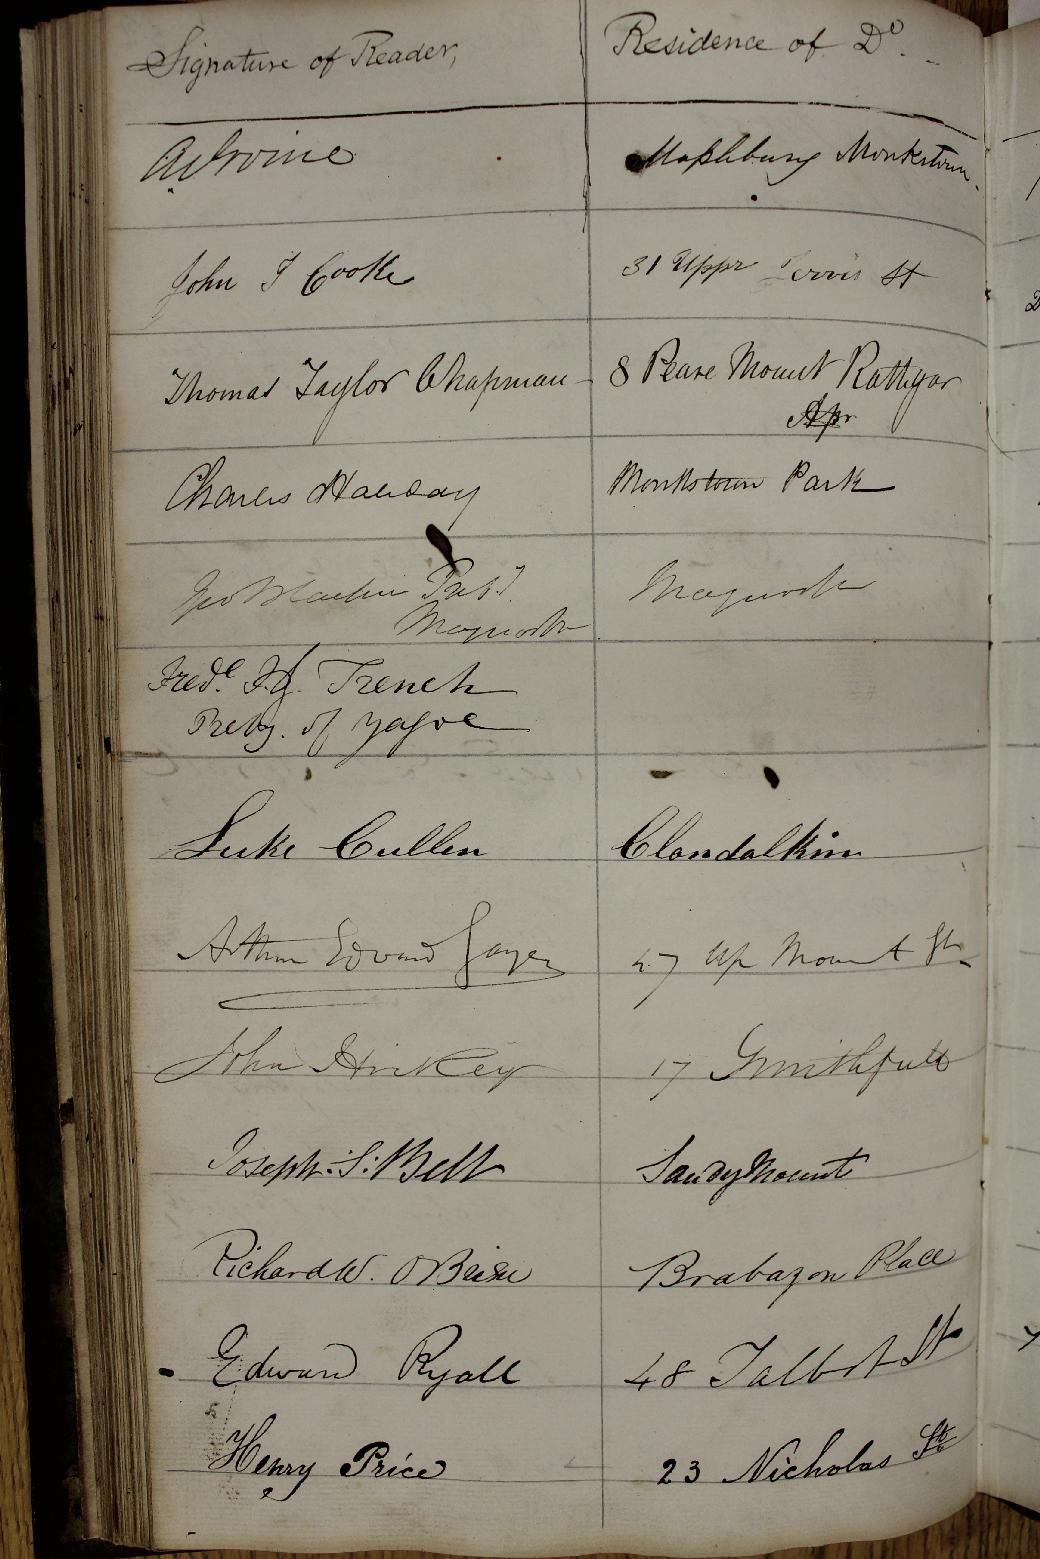 Signature of Reader, Residence of Do.
A Irvine Monkstown.
John T Cooke 31 Uppr St
Thomas Taylor Chapman - 8 Peare Mount Rathgar
Apr
Charles Haliday Monkstown Park
Maynooth
Maynooth
Fredc. F. J. Trench
Preby. of
Luke Cullen Clondalkin
Arthur Edward Gayer 47 Up Mount St.
John Hickey 17 Smithfield
Joseph. S: Bell Sandymount
Richard W. OBrien Brabazon Place
Edward Ryall 48 Talbot St
Henry Price 23 Nicholas St